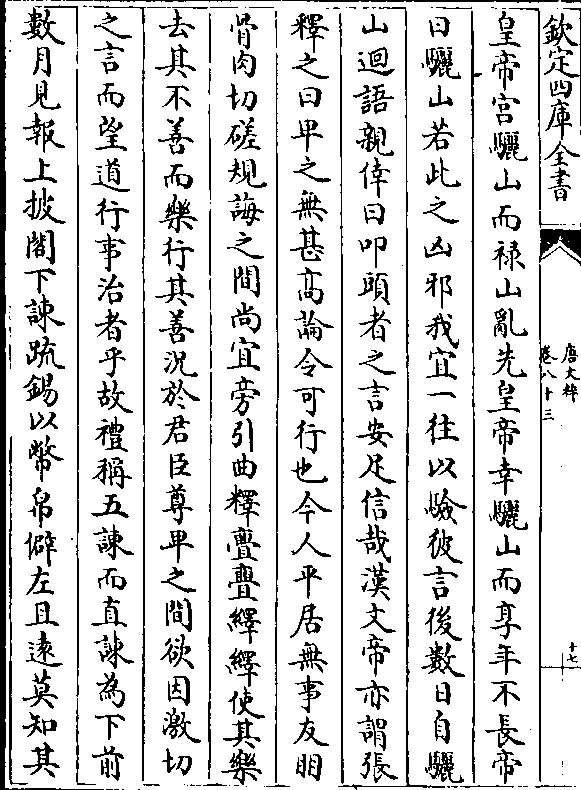 欽定四庫全書
唐文粹
卷八十三
十七
皇帝宫驪山而禄山亂先皇帝幸驪山而享年不長帝
曰驪山若此之凶邪我宜一往以驗彼言後數日自驪
山迴語親倖曰叩頭者之言安足信哉漢文帝亦謂張
釋之曰卑之無甚髙論令可行也今人平居無事友朋
骨肉切磋規誨之間尚宜旁引曲釋亹亹繹繹使其樂
去其不善而樂行其善況於君臣尊卑之間欲因激切
之言而望道行事治者乎故禮稱五諫而直諫為下前
數月見報上披閤下諫疏錫以幣帛僻左且逺莫知其